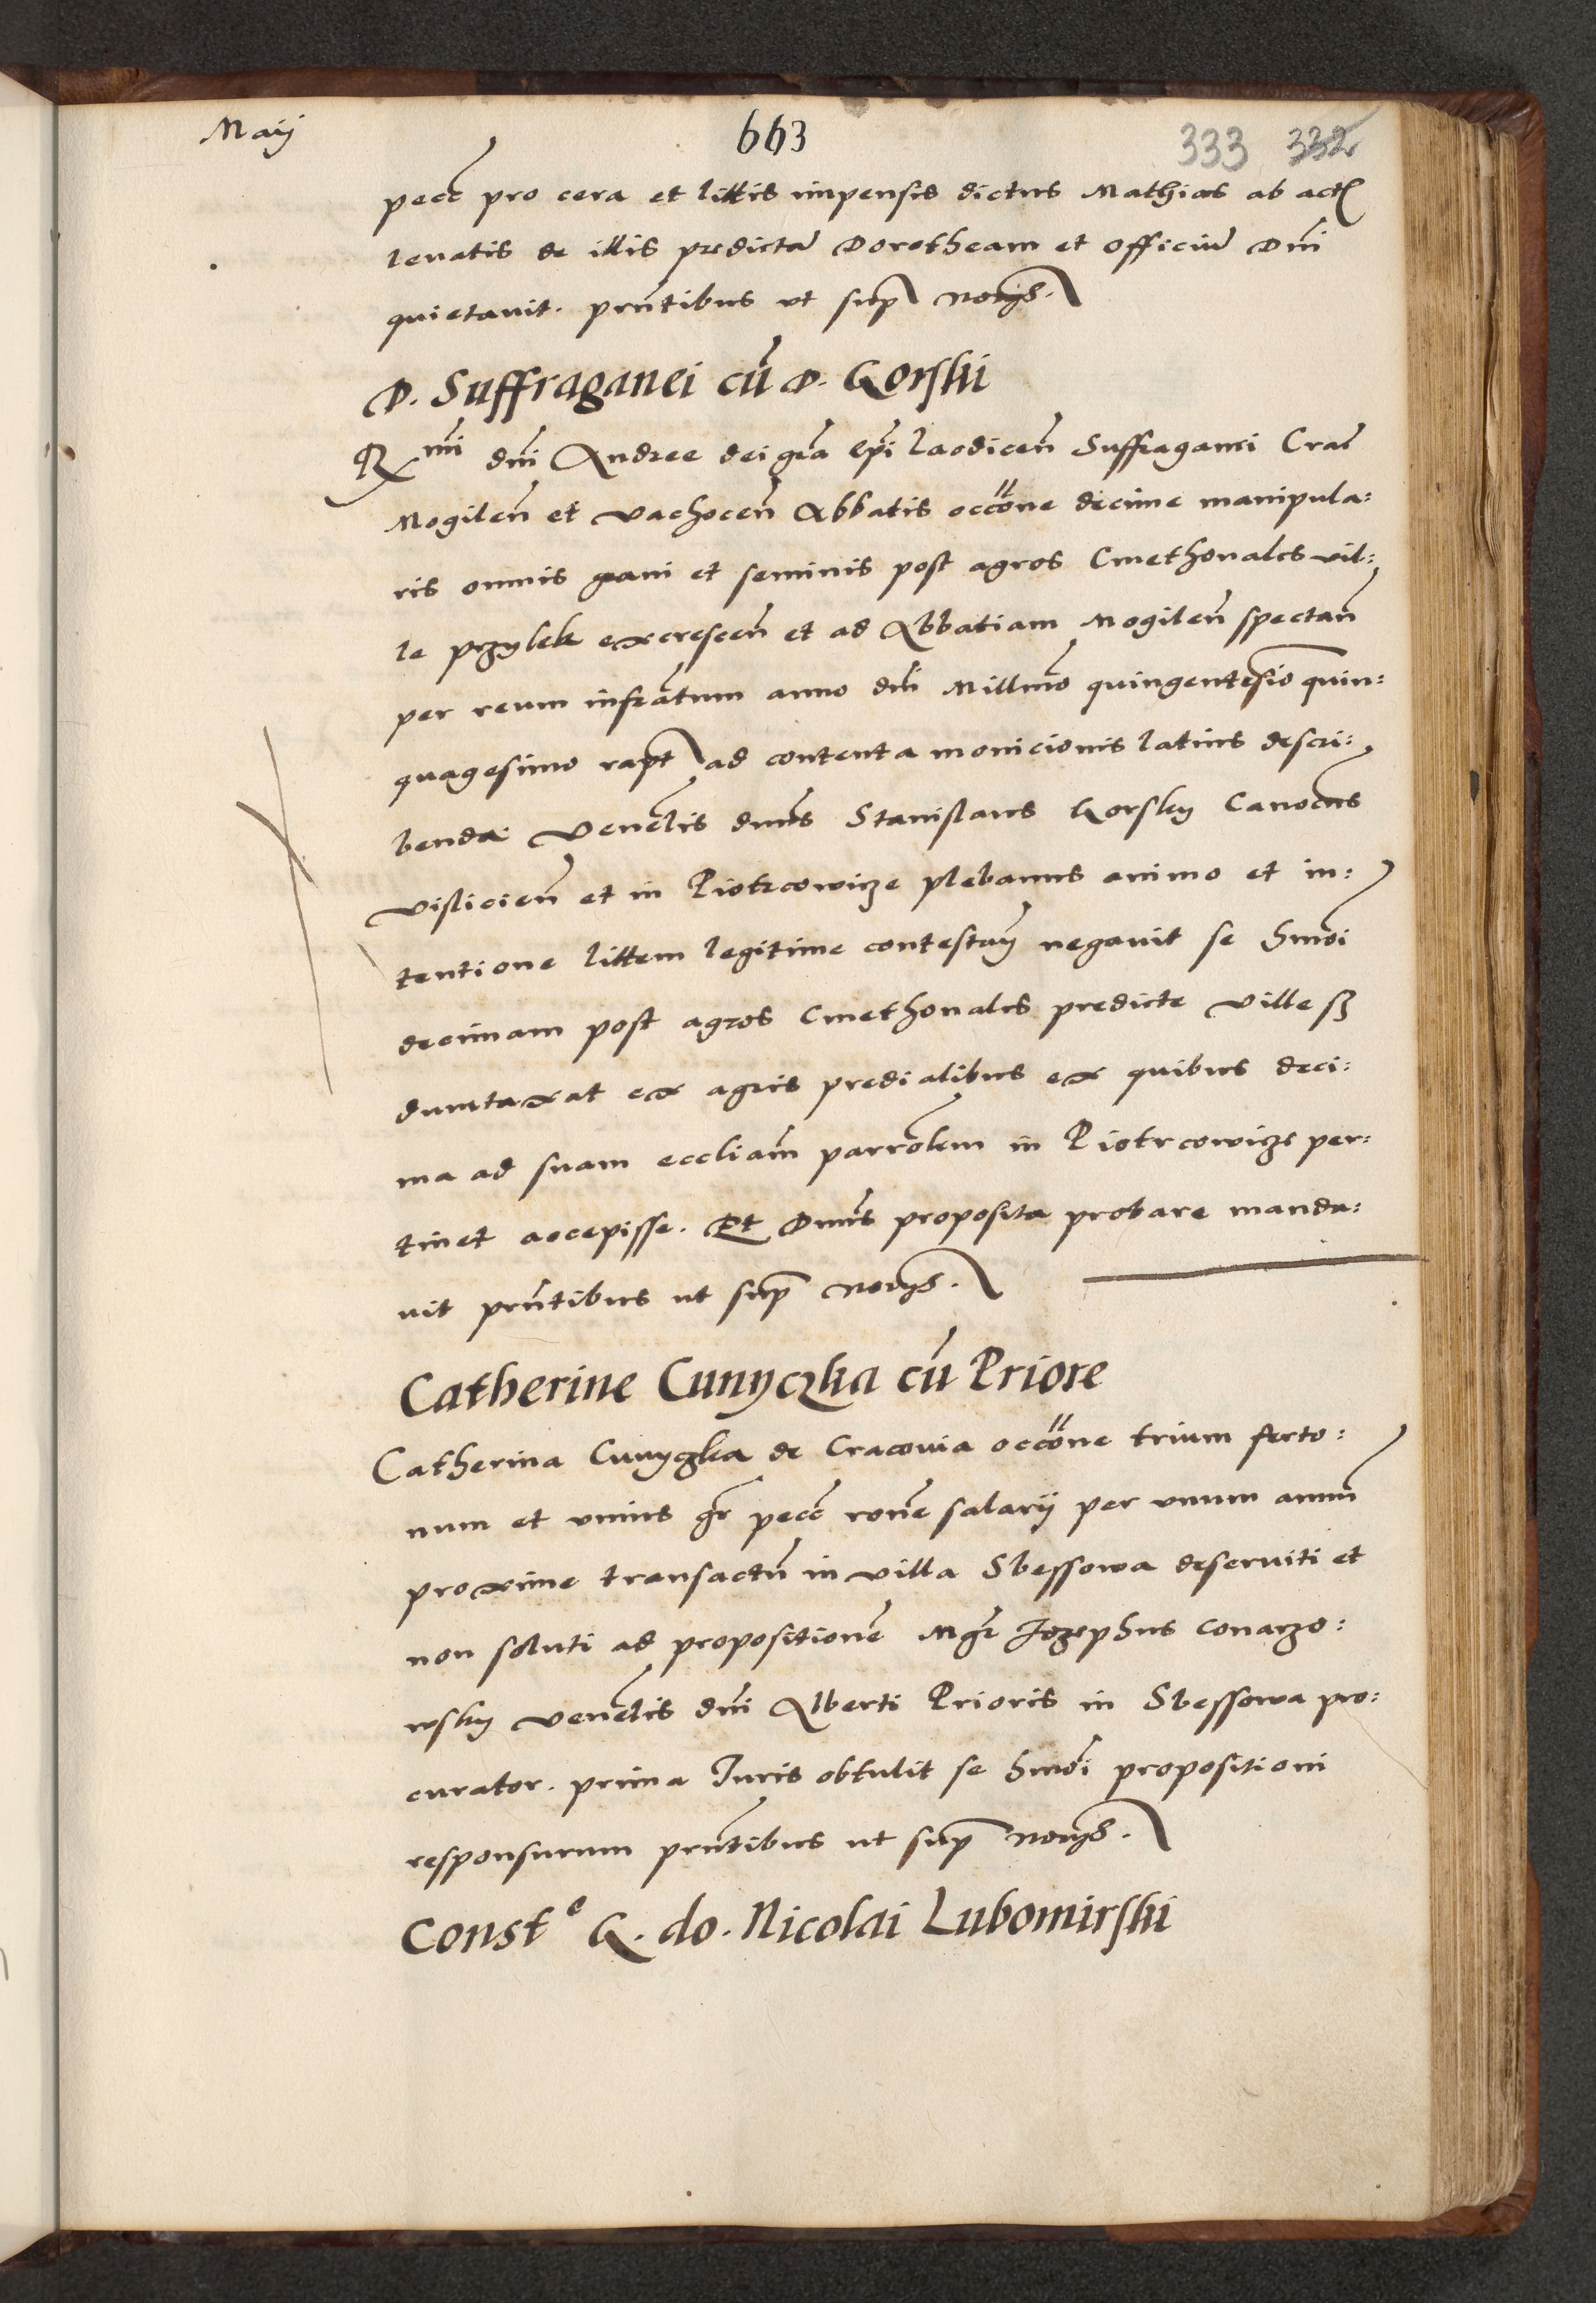 Maij
663
333 332
pecc pro cera et littis impensis dictus Mathias ab act
levatis de illis predictā Dorotheam et officiū Dni
quietavit. pntibus ut sup
D. Suffraganei cū D. Gorski
Rmi dni Andree dei gra Epi Laodicen Suffraganei Crac
Mogilen et Vachocen Abbatis occōne decime manipula:
ris omnis grani et seminis post agros Cmethonales vil:
le Przylek excrescen et ad Abbatiam Mogilen spectan
per reum infrātum anno dni Millmo quingentesīo quin:
quagesimo rapt ad contenta monicionis latius descri:
benda. Venelis dnus Stanislaus Gorsky Canocus
Vislicien et in Piotrcowicze plebanus animo et in:
tentione littem legitime contestaṅ negavit se hmoi
decimam post agros Cmethonales predicte ville sȝ
dumtaxat ex agris predialibus ex quibus deci:
ma ad suam eccliam parrolem in Piotrcowicze per:
tinet accepisse. Et Dnus proposita probare manda:
vit pntibus ut sup
Catherine Cunyczka cū Priore
Catherina Cunyczka de Cracovia occōne trium ferto:
num et unius gr pecc rone salarij per unum annū
proxime transactū in villa Sbessowa deserviti et
non soluti ad propositionē Mgr Jozephus Conarzo:
wsky Venelis dni Alberti Prioris in Sbessowa pro:
curator. prima Juris obtulit se hmoi propositioni
responsurum pntibus ut sup
Const e G. do. Nicolai Lubomirski